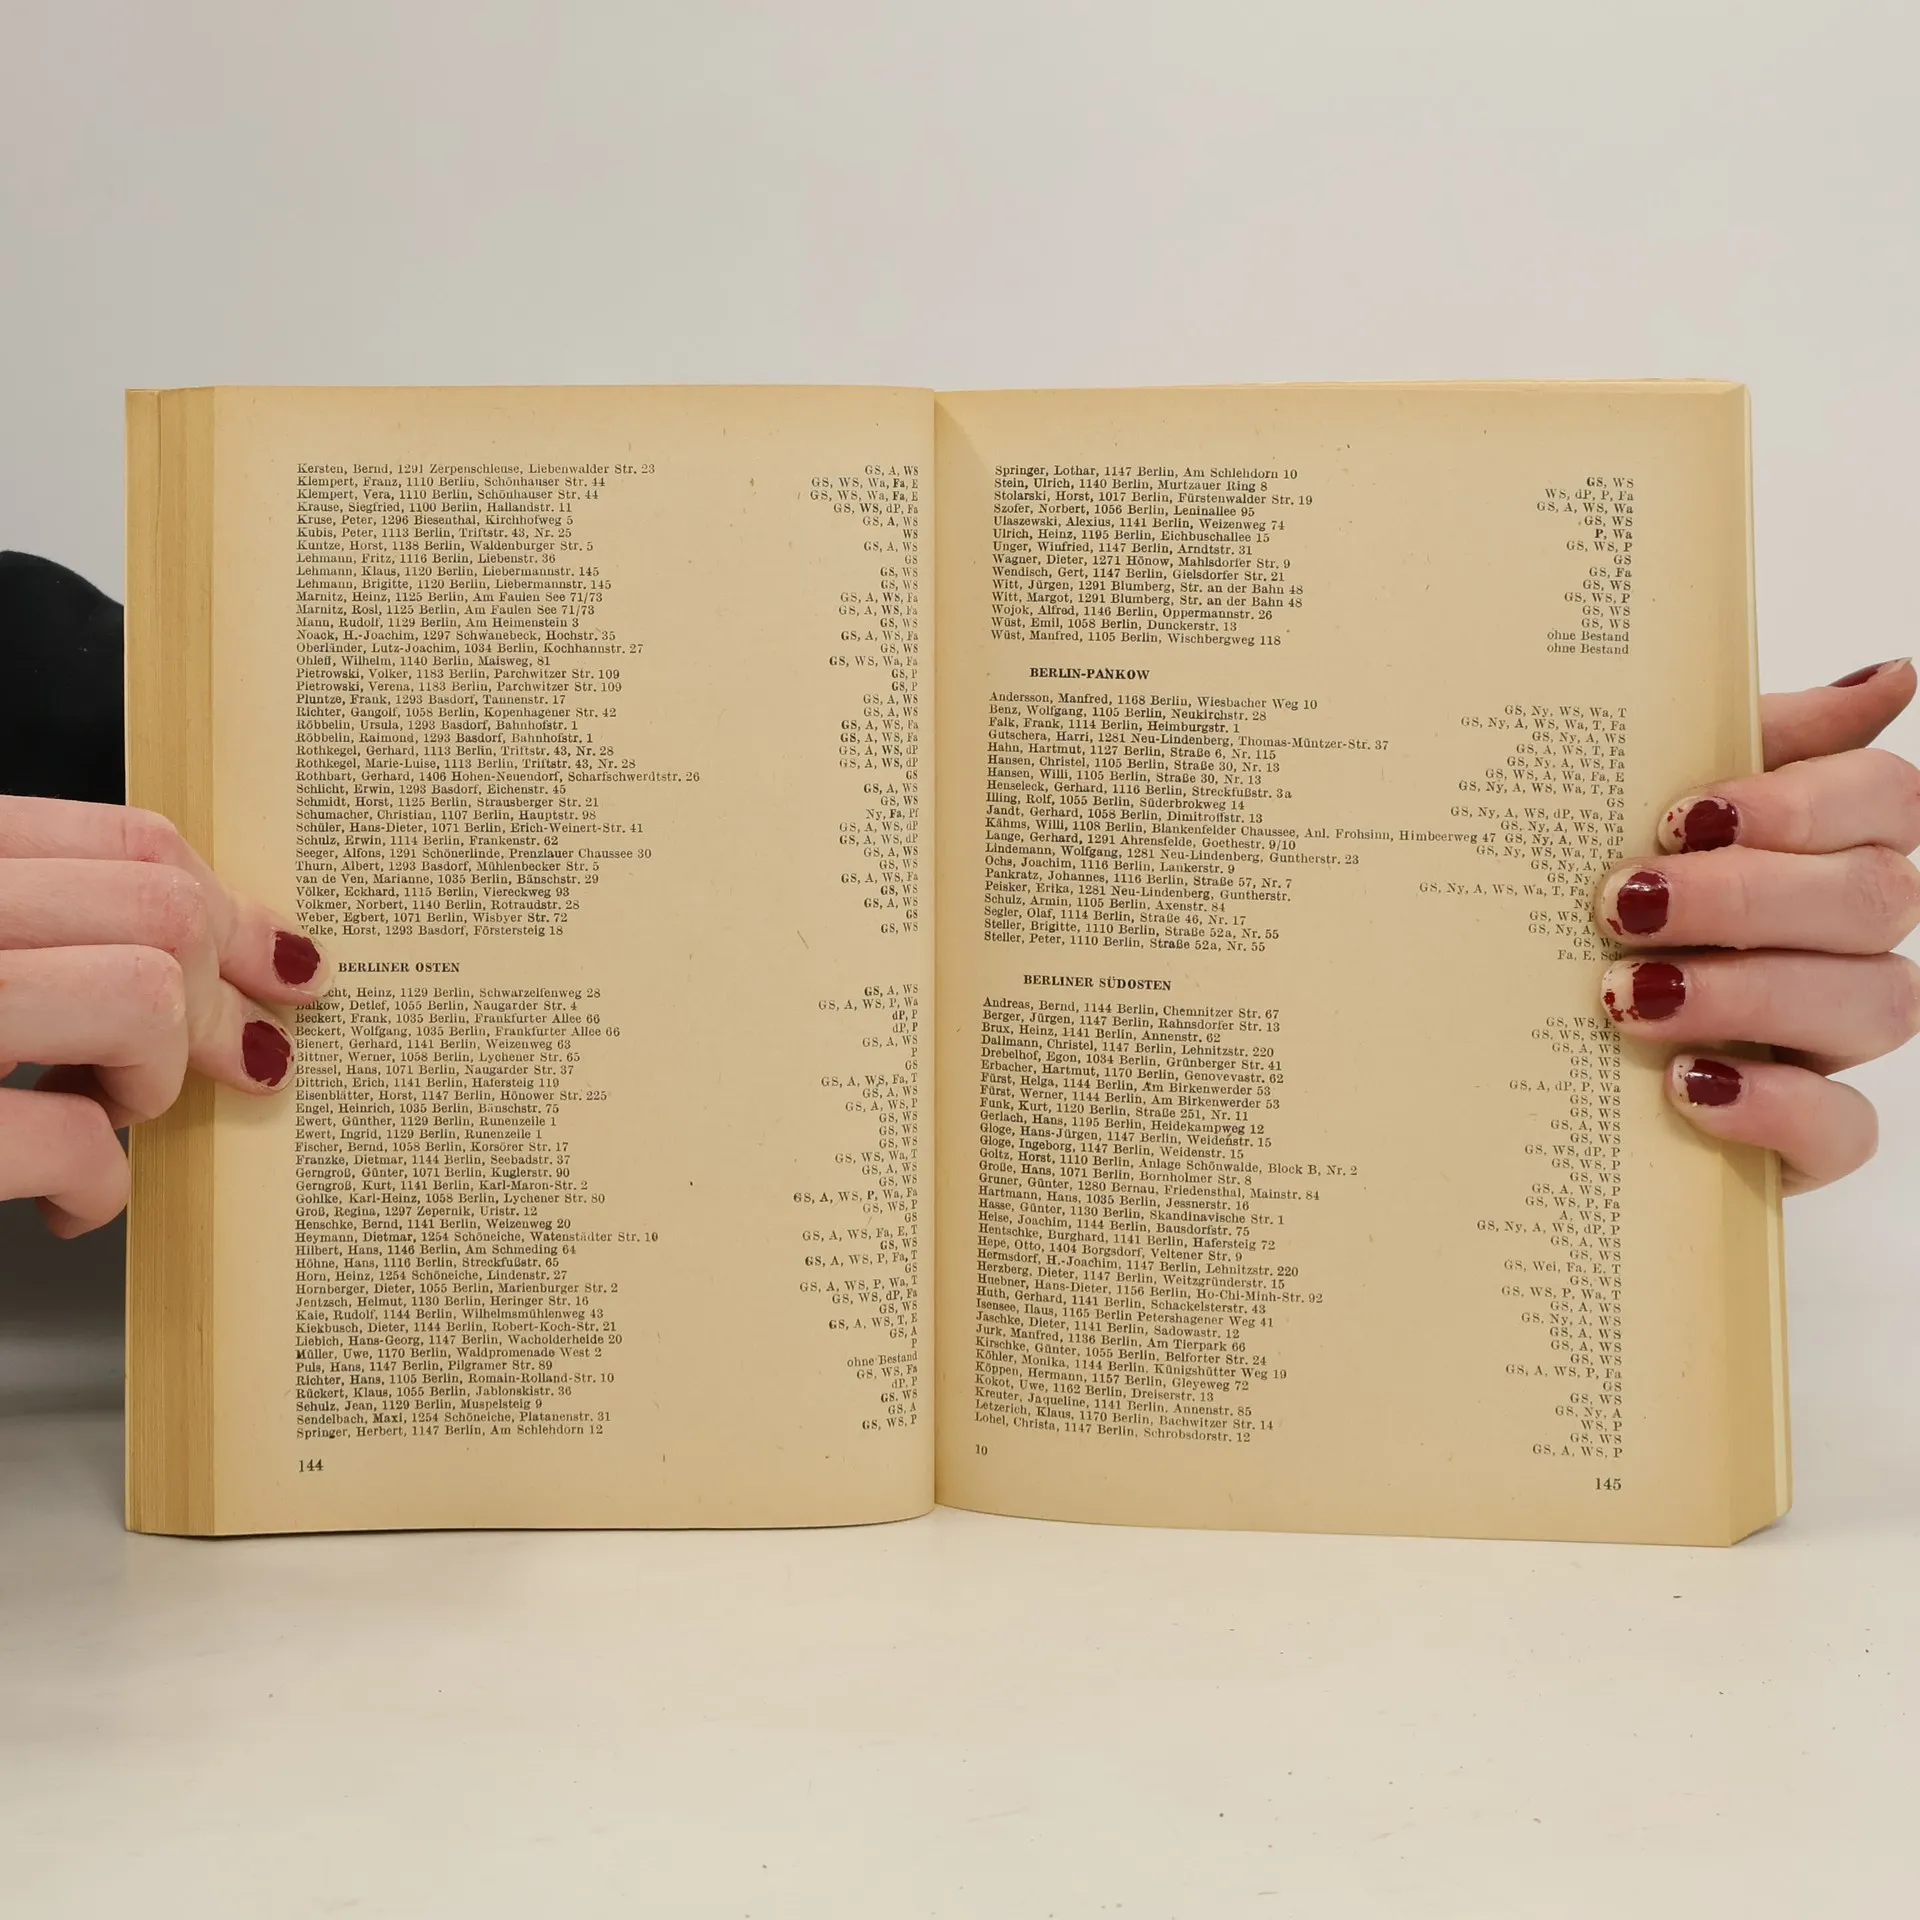 Kersten, Bernd, 1291 Zerpenschleuse, Liebenwalder Str. 23 GS, A, WS
Klempert, Franz, 1110 Berlin, Schönhauser Str. 44 GS, WS, Wa, Fa, E
Klempert, Vera, 1110 Berlin, Schönhauser Str. 44 GS, WS, Wa, Fa, E
Krause, Siegfried, 1100 Berlin, Hallandstr. 11 GS, WS, dP, Fa
Kruse, Peter, 1296 Biesenthal, Kirchhofweg 5 GS, A, WS
Kubis, Peter, 1113 Berlin, Triftstr. 43, Nr. 25 WS
Kuntze, Horst, 1138 Berlin, Waldenburger Str. 5 GS, A, WS
Lehmann, Fritz, 1116 Berlin, Liebenstr. 36 GS
Lehmann, Klaus, 1120 Berlin, Liebermannstr. 145 GS, WS
Lehmann, Brigitte, 1120 Berlin, Liebermannstr. 145 GS, WS
Marnitz, Heinz, 1125 Berlin, Am Faulen See 71/73 GS, A, WS, Fa
Marnitz, Rosl, 1125 Berlin, Am Faulen See 71/73 GS, A, WS, Fa
Mann, Rudolf, 1129 Berlin, Am Heimenstein 3 GS, WS
Noack, H.-Joachim, 1297 Schwanebeck, Hochstr. 35 GS, A, WS, Fa
Oberländer, Lutz-Joachim, 1034 Berlin, Kochhannstr. 27 GS, WS
Ohleff, Wilhelm, 1140 Berlin, Maisweg, 81 GS, WS, Wa, Fa
Pietrowski, Volker, 1183 Berlin, Parchwitzer Str. 109 GS, P
Pietrowski, Verena, 1183 Berlin, Parchwitzer Str. 109 GS, P
Pluntze, Frank, 1293 Basdorf, Tannenstr. 17 GS, A, WS
Richter, Gangolf, 1058 Berlin, Kopenhagener Str. 42 GS, A, WS
Röbbelin, Ursula, 1293 Basdorf, Bahnhofstr. 1 GS, A, WS, Fa
Röbbelin, Raimond, 1293 Basdorf, Bahnhofstr. 1 GS, A, WS, Fa
Rothkegel, Gerhard, 1113 Berlin, Triftstr. 43, Nr. 28 GS, A, WS, dP
Rothkegel, Marie-Luise, 1113 Berlin, Triftstr. 43, Nr. 28 GS, A, WS, dP
Rothbart, Gerhard, 1406 Hohen-Neuendorf, Scharfschwerdtstr. 26 GS
Schlicht, Erwin, 1293 Basdorf, Eichenstr. 45 GS, A, WS
Schmidt, Horst, 1125 Berlin, Strausberger Str. 21 GS, WS
Schumacher, Christian, 1107 Berlin, Hauptstr. 98 Ny, Fa, Pf
Schüler, Hans-Dieter, 1071 Berlin, Erich-Weinert-Str. 41 GS, A, WS, dP
Schulz, Erwin, 1114 Berlin, Frankenstr. 62 GS, A, WS, dP
Seeger, Alfons, 1291 Schönerlinde, Prenzlauer Chaussee 30 GS, A, WS
Thurn, Albert, 1293 Basdorf, Mühlenbecker Str. 5 GS, WS
van de Ven, Marianne, 1035 Berlin, Bänschstr. 29 GS, A, WS, Fa
Völker, Eckhard, 1115 Berlin, Viereckweg 93 GS, WS
Volkmer, Norbert, 1140 Berlin, Rotraudstr. 28 GS, A, WS
Weber, Egbert, 1071 Berlin, Wisbyer Str. 72 GS
Welke, Horst, 1293 Basdorf, Förstersteig 18 GS, WS
BERLINER OSTEN
Heinz, 1129 Berlin, Schwarzelfenweg 28 GS, A, WS
Balkow, Detlef, 1055 Berlin, Naugarder Str. 4 GS, A, WS, P, Wa
Beckert, Frank, 1035 Berlin, Frankfurter Allee 66 dP, P
Beckert, Wolfgang, 1035 Berlin, Frankfurter Allee 66 dP, P
Bienert, Gerhard, 1141 Berlin, Weizenweg 63 GS, A, WS
Bittner, Werner, 1058 Berlin, Lychener Str. 65 P
Bressel, Hans, 1071 Berlin, Naugarder Str. 37 GS
Dittrich, Erich, 1141 Berlin, Hafersteig 119 GS, A, WS, Fa, T
Eisenblätter, Horst, 1147 Berlin, Hönower Str. 225 GS, A, WS
Engel, Heinrich, 1035 Berlin, Bänschstr. 75 GS, A, WS, P
Ewert, Günther, 1129 Berlin, Runenzeile 1 GS, WS
Ewert, Ingrid, 1129 Berlin, Runenzeile 1 GS, WS
Fischer, Bernd, 1058 Berlin, Korsörer Str. 17 GS, WS
Franzke, Dietmar, 1144 Berlin, Seebadstr. 37 GS, WS, Wa, T
Gerngroß, Günter, 1071 Berlin, Kuglerstr. 90 GS, A, WS
Gerngroß, Kurt, 1141 Berlin, Karl-Maron-Str. 2 GS, WS
Gohlke, Karl-Heinz, 1058 Berlin, Lychener Str. 80 GS, A, WS, P, Wa, Fa
Groß, Regina, 1297 Zepernik, Uristr. 12 GS, WS, P
Henschke, Bernd, 1141 Berlin, Weizenweg 20 GS
Heymann, Dietmar, 1254 Schöneiche, Watenstädter Str. 10 GS, A, WS, Fa, E, T
Hilbert, Hans, 1146 Berlin, Am Schmeding 64 GS, WS
Höhne, Hans, 1116 Berlin, Streckfußstr. 65 GS, A, WS, P, Fa, T
Horn, Heinz, 1254 Schöneiche, Lindenstr. 27 GS
Hornberger, Dieter, 1055 Berlin, Marienburger Str. 2 GS, A, WS, P, Wa, T
Jentzsch, Helmut, 1130 Berlin, Heringer Str. 16 GS, WS, dP, Fa
Kaie, Rudolf, 1144 Berlin, Wilhelmsmühlenweg 43 GS, WS
Kiekbusch, Dieter, 1144 Berlin, Robert-Koch-Str. 21 GS, A, WS, T, E
Liebich, Hans-Georg, 1147 Berlin, Wacholderheide 20 GS, A
Müller, Uwe, 1170 Berlin, Waldpromenade West 2 P
Puls, Hans, 1147 Berlin, Pilgramer Str. 89 ohne Bestand
Richter, Hans, 1105 Berlin, Romain-Rolland-Str. 10 GS, WS, Fa
Rückert, Klaus, 1055 Berlin, Jablonskistr. 36 dP, P
Schulz, Jean, 1129 Berlin, Muspelsteig 9 GS, WS
Sendelbach, Maxi, 1254 Schöneiche, Platanenstr. 31 GS, A
Springer, Herbert, 1147 Berlin, Am Schlehdorn 12 GS, WS, P
144
Springer, Lothar, 1147 Berlin, Am Schlehdorn 10 GS, WS
Stein, Ulrich, 1140 Berlin, Murtzauer Ring 8 WS, dP, P, Fa
Stolarski, Horst, 1017 Berlin, Fürstenwalder Str. 19 GS, A, WS, Wa
Szofer, Norbert, 1056 Berlin, Leninallee 95 GS, WS
Ulaszewski, Alexius, 1141 Berlin, Weizenweg 74 P, Wa
Ulrich, Heinz, 1195 Berlin, Eichbuschallee 15 GS, WS, P
Unger, Winfried, 1147 Berlin, Arndtstr. 31 GS
Wagner, Dieter, 1271 Hönow, Mahlsdorfer Str. 9 GS, Fa
Wendisch, Gert, 1147 Berlin, Gielsdorfer Str. 21 GS, WS
Witt, Jürgen, 1291 Blumberg, Str. an der Bahn 48 GS, WS, P
Witt, Margot, 1291 Blumberg, Str. an der Bahn 48 GS, WS
Wojok, Alfred, 1146 Berlin, Oppermannstr. 26 GS, WS
Wüst, Emil, 1058 Berlin, Dunckerstr. 13 ohne Bestand
Wüst, Manfred, 1105 Berlin, Wischbergweg 118 ohne Bestand
BERLIN-PANKOW
Andersson, Manfred, 1168 Berlin, Wiesbacher Weg 10 GS, Ny, WS, Wa, T
Benz, Wolfgang, 1105 Berlin, Neukirchstr. 28 GS, Ny, A, WS, Wa, T, Fa
Falk, Frank, 1114 Berlin, Heimburgstr. 1 GS, Ny, A, WS
Gutschera, Harri, 1281 Neu-Lindenberg, Thomas-Müntzer-Str. 37 GS, A, WS, T, Fa
Hahn, Hartmut, 1127 Berlin, Straße 6, Nr. 115 GS, Ny, A, WS, Fa
Hansen, Christel, 1105 Berlin, Straße 30, Nr. 13 GS, WS, A, Wa, Fa, E
Hansen, Willi, 1105 Berlin, Straße 30, Nr. 13 GS, Ny, A, WS, Wa, T, Fa
Henseleck, Gerhard, 1116 Berlin, Streckfußstr. 3a GS
Illing, Rolf, 1055 Berlin, Süderbrokweg 14 GS, Ny, A, WS, dP, Wa, Fa
Jandt, Gerhard, 1058 Berlin, Dimitroffstr. 13 GS, Ny, A, WS, Wa
Kähms, Willi, 1108 Berlin, Blankenfelder Chaussee, Anl. Frohsinn, Himbeerweg 47 GS, Ny, A, WS, dP
Lange, Gerhard, 1291 Ahrensfelde, Goethestr. 9/10 GS, Ny, WS, Wa, T, Fa
Lindemann, Wolfgang, 1281 Neu-Lindenberg, Guntherstr. 23 GS, Ny, A,
Ochs, Joachim, 1116 Berlin, Lankerstr. 9 GS, Ny,
Pankratz, Johannes, 1116 Berlin, Straße 57, Nr. 7 GS, Ny, A, WS, Wa, T, Fa,
Peisker, Erika, 1281 Neu-Lindenberg, Guntherstr. Ny,
Schulz, Armin, 1105 Berlin, Axenstr. 84 GS, WS,
Segler, Olaf, 1114 Berlin, Straße 46, Nr. 17 GS, Ny, A,
Steller, Brigitte, 1110 Berlin, Straße 52a, Nr. 55 GS, WS
Steller, Peter, 1110 Berlin, Straße 52a, Nr. 55 Fa, E, Sch
BERLINER SÜDOSTEN
Andreas, Bernd, 1144 Berlin, Chemnitzer Str. 67 GS, WS,
Berger, Jürgen, 1147 Berlin, Rahnsdorfer Str. 13 GS, WS, SWS
Brux, Heinz, 1141 Berlin, Annenstr. 62 GS, A, WS
Dallmann, Christel, 1147 Berlin, Lehnitzstr. 220 GS, WS
Drebelhof, Egon, 1034 Berlin, Grünberger Str. 41 GS, WS
Erbacher, Hartmut, 1170 Berlin, Genovevastr. 62 GS, A, dP, P, Wa
Fürst, Helga, 1144 Berlin, Am Birkenwerder 53 GS, WS
Fürst, Werner, 1144 Berlin, Am Birkenwerder 53 GS, WS
Funk, Kurt, 1120 Berlin, Straße 251, Nr. 11 GS, A, WS
Gerlach, Hans, 1195 Berlin, Heidekampweg 12 GS, WS
Gloge, Hans-Jürgen, 1147 Berlin, Weidenstr. 15 GS, WS, dP, P
Gloge, Ingeborg, 1147 Berlin, Weidenstr. 15 GS, WS, P
Goltz, Horst, 1110 Berlin, Anlage Schönwalde, Block B, Nr. 2 GS, WS
Große, Hans, 1071 Berlin, Bornholmer Str. 8 GS, A, WS, P
Gruner, Günter, 1280 Bernau, Friedensthal, Mainstr. 84 GS, WS, P, Fa
Hartmann, Hans, 1035 Berlin, Jessnerstr. 16 A, WS, P
Hasse, Günter, 1130 Berlin, Skandinavische Str. 1 GS, Ny, A, WS, dP, P
Heise, Joachim, 1144 Berlin, Bausdorfstr. 75 GS, A, WS
Hentschke, Burghard, 1141 Berlin, Hafersteig 72 GS, WS
Hepe, Otto, 1404 Borgsdorf, Veltener Str. 9 GS, Wei, Fa, E, T
Hermsdorf, H.-Joachim, 1147 Berlin, Lehnitzstr. 220 GS, WS
Herzberg, Dieter, 1147 Berlin, Weitzgründerstr. 15 GS, WS, P, Wa, T
Huebner, Hans-Dieter, 1156 Berlin, Ho-Chi-Minh-Str. 92 GS, A, WS
Huth, Gerhard, 1141 Berlin, Schackelsterstr. 43 GS, Ny, A, WS
Isensee, Ilaus, 1165 Berlin Petershagener Weg 41 GS, A, WS
Jaschke, Dieter, 1141 Berlin, Sadowastr. 12 GS, A, WS
Jurk, Manfred, 1136 Berlin, Am Tierpark 66 GS, WS
Kirschke, Günter, 1055 Berlin, Belforter Str. 24 GS, A, WS, P, Fa
Köhler, Monika, 1144 Berlin, Künigshütter Weg 19 GS
Köppen, Hermann, 1157 Berlin, Gleyeweg 72 GS, WS
Kokot, Uwe, 1162 Berlin, Dreiserstr. 13 GS, Ny, A
Kreuter, Jaqueline, 1141 Berlin, Annenstr. 85 WS, P
Letzerich, Klaus, 1170 Berlin, Bachwitzer Str. 14 GS, WS
Lohel, Christa, 1147 Berlin, Schrobsdorstr. 12 GS, A, WS, P
10
145